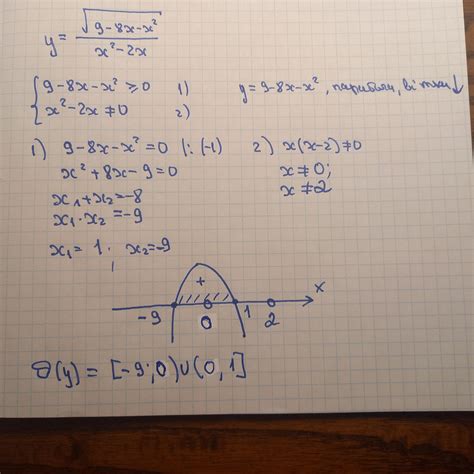 y = √(9-8x-x²) / (x²-2x)
{ 9-8x-x² ≥ 0 1)
{ x²-2x ≠ 0 2)
y = 9-8x-x², парабола, ↓
1) 9-8x-x² = 0 |: (-1)
x² + 8x - 9 = 0
x₁ + x₂ = -8
x₁ · x₂ = -9
x₁ = 1. x₂ = -9
2) x(x-2) ≠ 0
x ≠ 0;
x ≠ 2
+
x
-9 0 1 2
D(y) = [-9; 0) ∪ (0, 1]